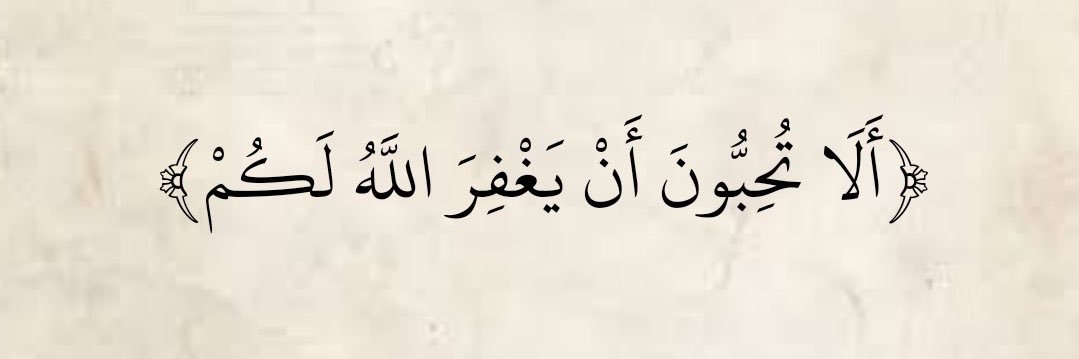 ﴿أَلَا تُحِبُّونَ أَنْ يَغْفِرَ اللَّهُ لَكُمْ﴾